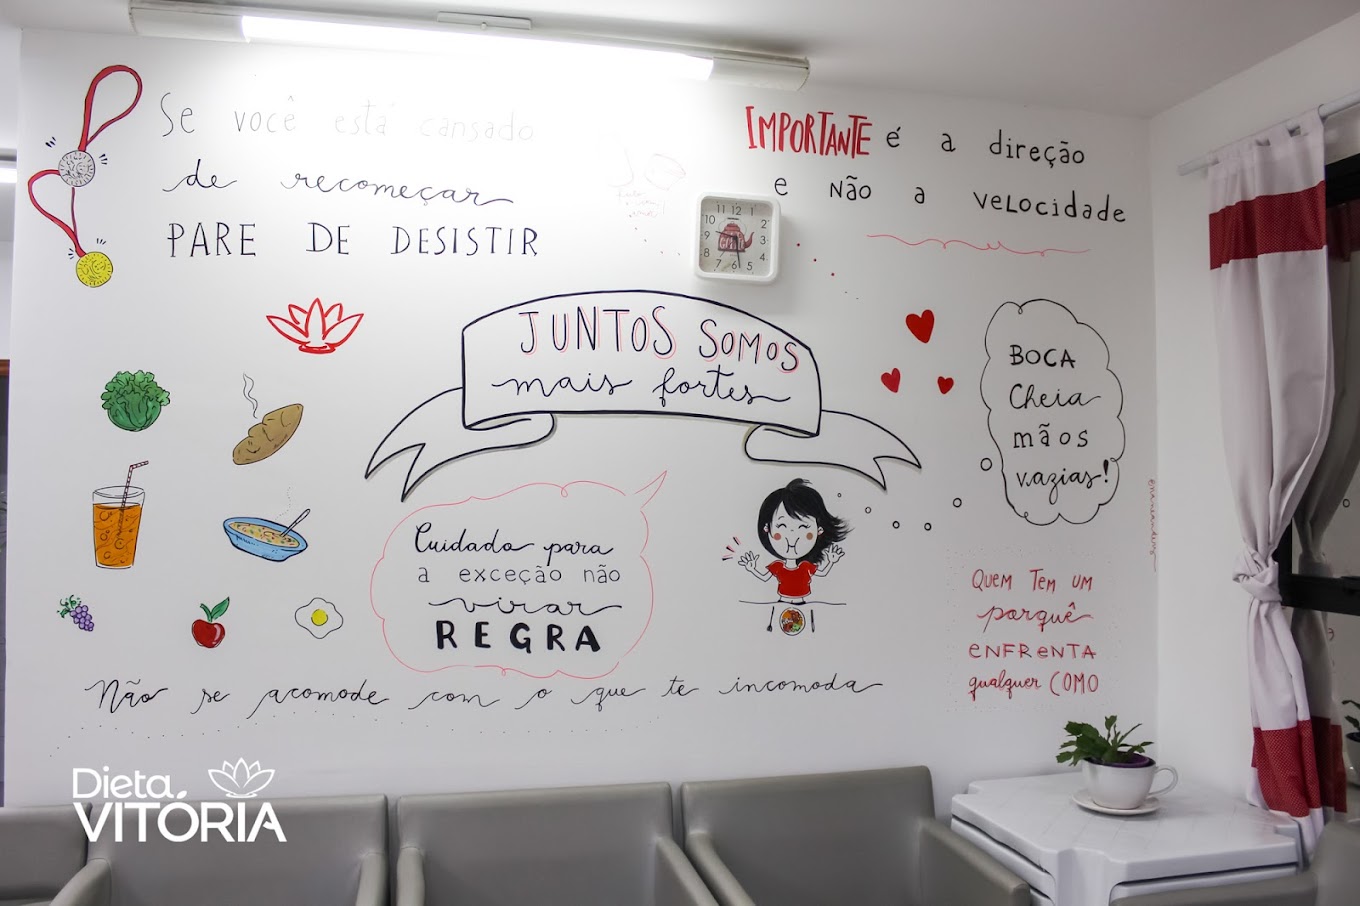 Se você está cansado
de recomeçar
PARE DE DESISTIR
IMPORTANTE é a direção
e NÃO a VeLOCIDADE
JUNTOS SOMOS
mais fortes
BOCA
Cheia
mãos
vazias!
Cuidado para
a exceção não
virar
REGRA
QUEM TEM UM
porquê
ENFRENTA
qualquer COMO
Não se acomode com o que te incomoda
Dieta
VITÓRIA